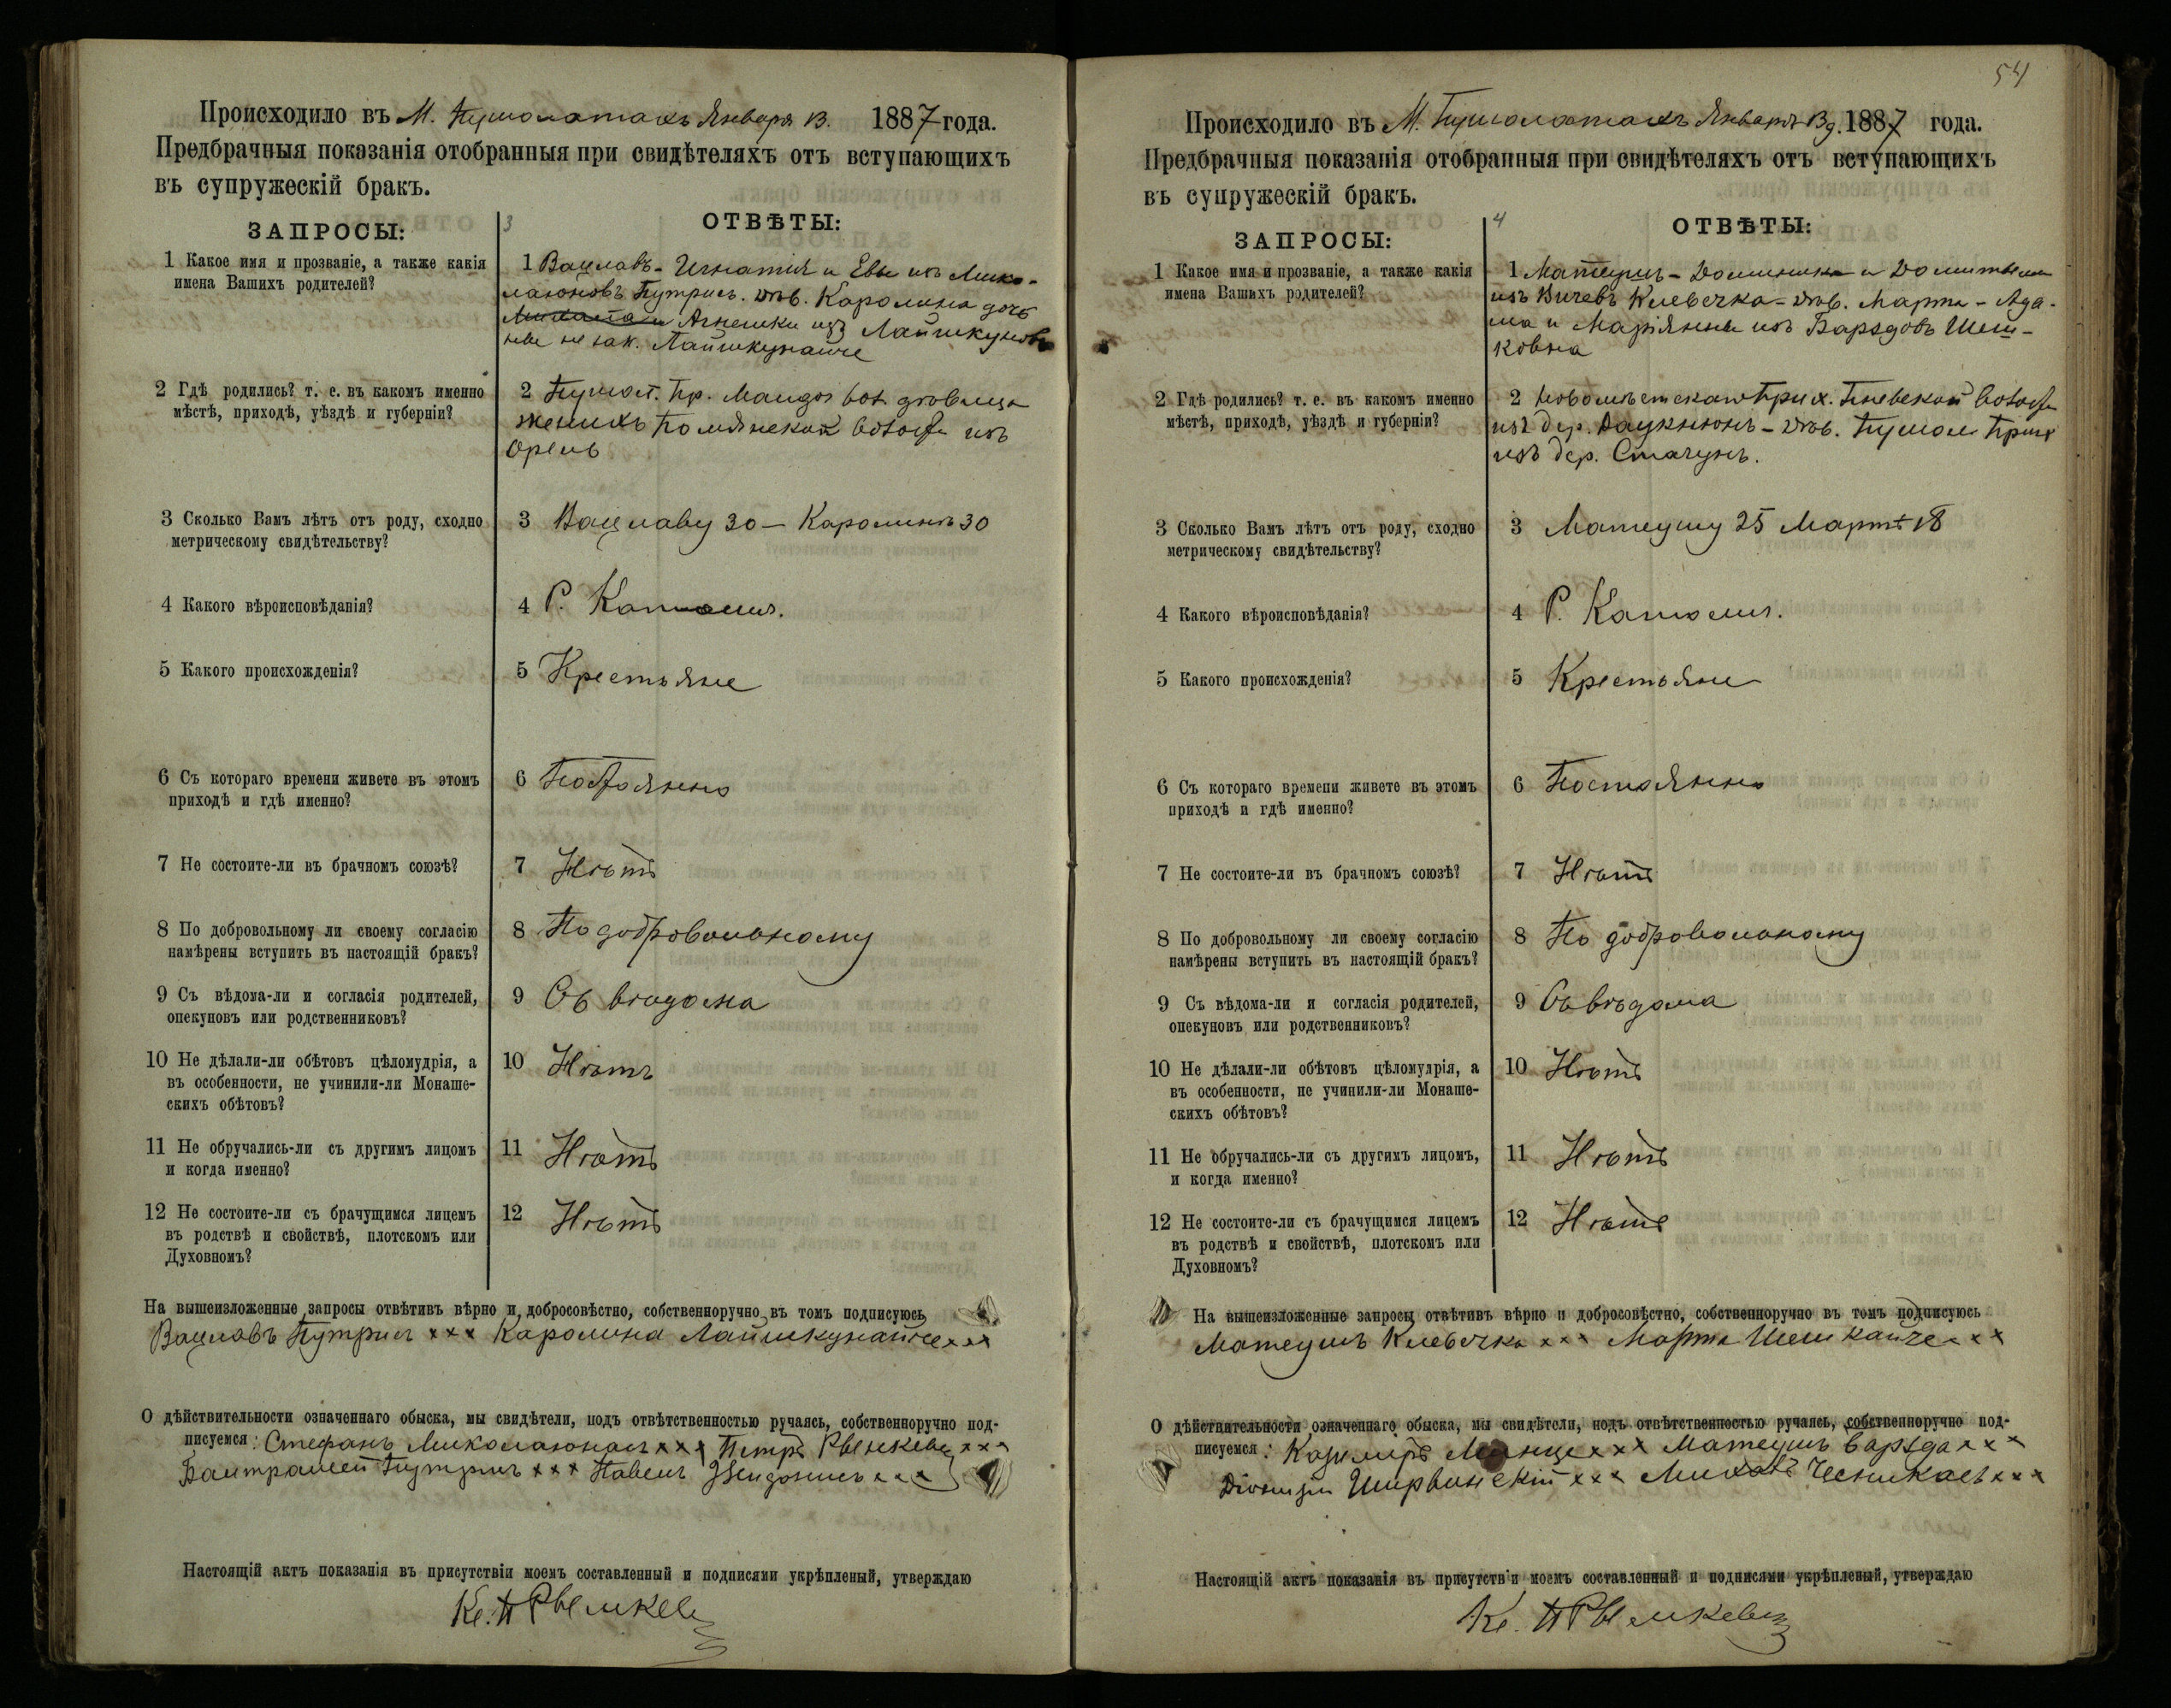 Происходило въ М. Пумолатахъ Января 13. 1887 года.
Предбрачныя показанія отобранныя при свидѣтеляхъ отъ вступающихъ
въ супружескій бракъ.
ЗАПРОСЫ:
3
ОТВѢТЫ:
1 Какое имя и прозваніе, а также какія
имена Вашихъ родителей?
1 Вацлавъ - Игнатія и Евы изъ Мико-
лаюновъ Путрисъ. дѣв. Каролина дочь
Агнешки изъ Лайшкуновъ
не зак. Лайшкунайче
2 Гдѣ родились? т. е. въ какомъ именно
мѣстѣ, приходѣ, уѣздѣ и губерніи?
2 Пумол. Пр. дѣвица
женихъ изъ
3 Сколько Вамъ лѣтъ отъ роду, сходно
метрическому свидѣтельству?
3 Вацлаву 30 — Каролинѣ 30
4 Какого вѣроисповѣданія?
4 Р. Католич.
5 Какого происхожденія?
5 Крестьяне
6 Съ котораго времени живете въ этомъ
приходѣ и гдѣ именно?
6 Постоянно
7 Не состоите-ли въ брачномъ союзѣ?
7 Нѣтъ
8 По добровольному ли своему согласію
намѣрены вступить въ настоящій бракъ?
8 По добровольному
9 Съ вѣдома-ли и согласія родителей,
опекуновъ или родственниковъ?
9 Съ вѣдома
10 Не дѣлали-ли обѣтовъ цѣломудрія, а
въ особенности, не учинили-ли Монаше-
скихъ обѣтовъ?
10 Нѣтъ
11 Не обручались-ли съ другимъ лицомъ
и когда именно?
11 Нѣтъ
12 Не состоите-ли съ брачущимся лицемъ
въ родствѣ и свойствѣ, плотскомъ или
Духовномъ?
12 Нѣтъ
На вышеизложенные запросы отвѣтивъ вѣрно и добросовѣстно, собственноручно въ томъ подписуюсь
Вацлавъ Путрисъ ххх Каролина Лайшкунайче ххх
О дѣйствительности означеннаго обыска, мы свидѣтели, подъ отвѣтственностью ручаясь, собственноручно под-
писуемся: Стефанъ Миколаюнасъ ххх Петръ ххх
Путрисъ ххх Павелъ ххх
Настоящій актъ показанія въ присутствіи моемъ составленный и подписями укрѣпленый, утверждаю
Кс. П
54
Происходило въ М. Пумолатахъ Января 13 д. 1887 года.
Предбрачныя показанія отобранныя при свидѣтеляхъ отъ вступающихъ
въ супружескій бракъ.
ЗАПРОСЫ:
4
ОТВѢТЫ:
1 Какое имя и прозваніе, а также какія
имена Вашихъ родителей?
1 Матеушъ - Доминика и
изъ Клевечка - дѣв. Марта - Ада-
ма и Маріянны изъ Барздовъ Шеш-
ковна
2 Гдѣ родились? т. е. въ какомъ именно
мѣстѣ, приходѣ, уѣздѣ и губерніи?
2 Новомѣстскаго Прих.
изъ дер. Даукнюнъ - дѣв. Пумол. Прих
изъ дер. Стачунъ.
3 Сколько Вамъ лѣтъ отъ роду, сходно
метрическому свидѣтельству?
3 Матеушу 25 Мартѣ 18
4 Какого вѣроисповѣданія?
4 Р. Католич.
5 Какого происхожденія?
5 Крестьяне
6 Съ котораго времени живете въ этомъ
приходѣ и гдѣ именно?
6 Постоянно
7 Не состоите-ли въ брачномъ союзѣ?
7 Нѣтъ
8 По добровольному ли своему согласію
намѣрены вступить въ настоящій бракъ?
8 По добровольному
9 Съ вѣдома-ли и согласія родителей,
опекуновъ или родственниковъ?
9 Съ вѣдома
10 Не дѣлали-ли обѣтовъ цѣломудрія, а
въ особенности, не учинили-ли Монаше-
скихъ обѣтовъ?
10 Нѣтъ
11 Не обручались-ли съ другихъ лицомъ,
и когда именно?
11 Нѣтъ
12 Не состоите-ли съ брачущимся лицемъ
въ родствѣ и свойствѣ, плотскомъ или
Духовномъ?
12 Нѣтъ
На вышеизложенные запросы отвѣтивъ вѣрно и добросовѣстно, собственноручно въ томъ подписуюсь
Матеушъ Клевечка ххх Марта Шешкайче ххх
О дѣйствительности означеннаго обыска, мы свидѣтели, подъ отвѣтственностью ручаясь, собственноручно под-
писуемся: Казимиръ ххх Матеушъ Барзда ххх
Ширвинскій ххх ххх
Настоящій актъ показанія въ присутствіи моемъ составленный и подписями укрѣпленый, утверждаю
Кс. П